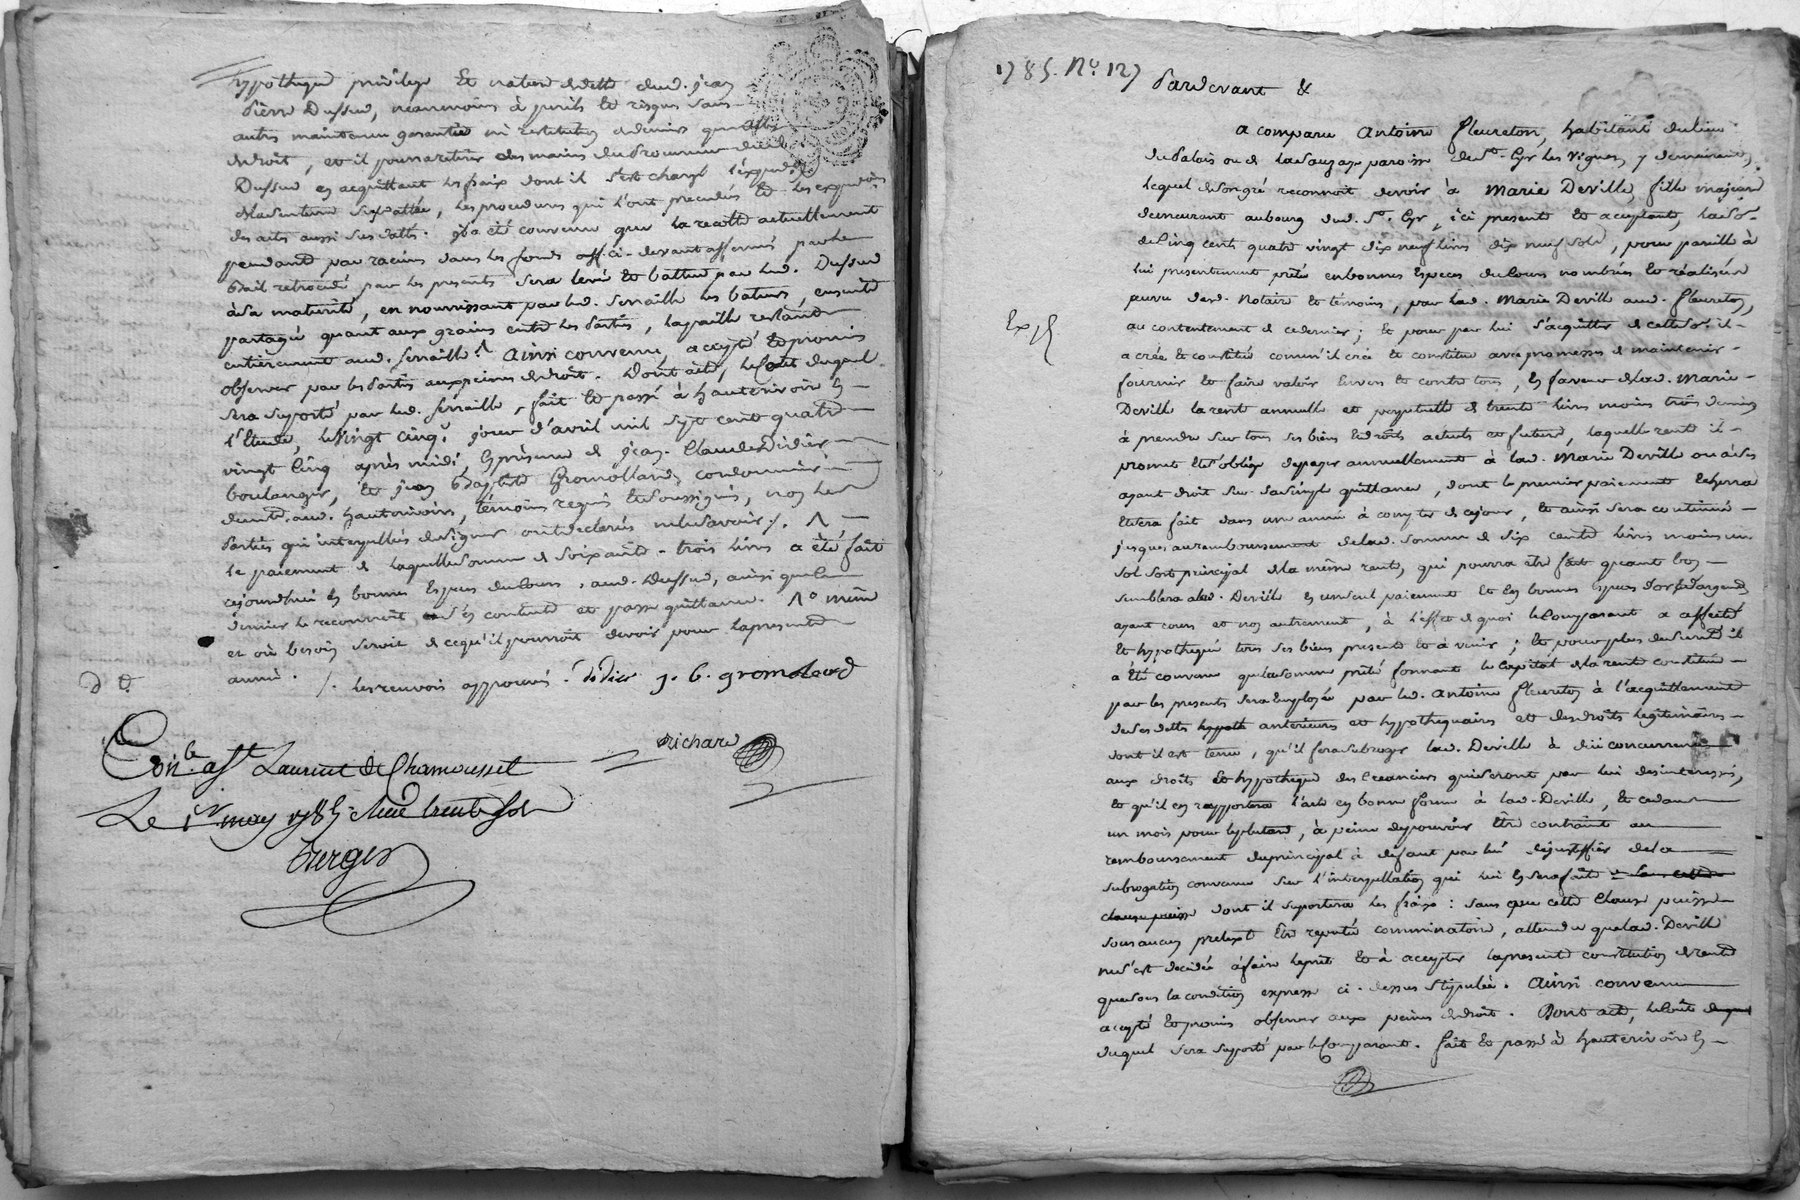 hypotheque privilege Et nature de dette dud. jean
Pierre Dussud, neanmoins à perils Et risques sans
autre maintenue garantie ni restitution de deniers que
de droit, et il pourra retirer des mains du Procureur dud.
Dussud en acquittant les frais dont il s'est chargé
de la sentence susdattée, les procedures qui l'ont precedée Et les
des actes aussi susdattés. jl a été convenu que la recolte actuellement
pendante par racines dans les fonds ci-devant affermés par le
Bail retrocedé par les presentes sera levée Et battue par led. Dussud
à sa maturité, en nourrissant par led. Serraille les bateurs, ensuite
partagée quant aux grains entre les Parties, la paille restant
entierement aud. Serraille. Ainsi convenu, accepté Et promis
observer par les Parties aux peines de droit. Dont acte, le Coût duquel
sera suporté par led. Serraille, fait Et passé à hauterivoire En
l'Etude, le vingt cinq.e jour d'avril mil sept cent quatre
vingt Cinq après midi, En présence de jean Claude Didier
boulanger, Et jean Baptiste Gromolland cordonnier
aud. hauterivoire, témoins requis Et soussignés, non les
Parties qui interpellées de signer ont declaré ne le savoir /. Λ
le paiement de laquelle somme de soixante-trois livres a été fait
cejourd'hui En bonnes Espèces du Cours, aud. Dussud, ainsi que le
dernier le reconnoit, s'en contente et passe quittance. Λ° même
et où besoin seroit de ce qu'il pourroit devoir pour la presente
année. /. les renvois approuvés. didier j. b. gromoland
Richard
Con.lé a St Laurent de Chamousset
Le 1er may 1785 Reçu trente sols
Verger
1785. N.° 127
Pardevant &
a comparu Antoine fleureton, habitant du lieu
du Palais ou de la Sauzaye paroisse de St. Cyr les Vignes, y demeurant,
lequel de son gré reconnoit devoir à Marie Deville, fille majeure
demeurant au bourg dud. St. Cyr, ici presente Et acceptante, la so-
de Cinq cent quatre vingt dix neuf livres dix neuf sols, pour pareille à
lui presentement prêtée en bonnes Especes du Cours nombrées Et réalisées
au vu dud. Notaire Et témoins, par lad. Marie Deville aud. fleureton,
Exp.
au contentement de ce dernier; Et pour par lui s'acquitter de cette so. il-
a créé Et constitué comm'il crée Et constitue avec promesses de maintenir-
fournir Et faire valoir Envers Et contre tous, En faveur de lad. Marie-
Deville la rente annuelle et perpetuelle de trente livres moins trois deniers
à prendre sur tous ses biens Et droits actuels et futurs, laquelle rente il-
promet Et s'oblige de payer annuellement à lad. Marie Deville ou à ses
ayant droit sur sa simple quittance, dont le premier paiement Echerra
Et sera fait dans une année à compter de ce jour, Et ainsi sera continué-
jusques au remboursement de lad. somme de six cents livres moins un
sol sort principal de la même rente, qui pourra être fait quand bon-
semblera alad. Deville En un seul paiement Et En bonnes Espèces d'or Et d'argent
ayant cours et non autrement, à l'effet de quoi le Comparant a affecté
Et hypothequé tous ses biens presents Et à venir; Et pour plus de sureté il
a été convenu que la somme prêtée formant le capital de la rente constituée-
par les presentes sera Employée par led. Antoine fleureton à l'acquittement
de ses dettes hypoth anterieures et hypothequaires et des droits legitimaires-
dont il est tenu, qu'il fera subroger lad. Deville à due concurrence
aux droits Et hypotheques des Creanciers qui seront par lui desinteressés,
Et qu'il en rapportera l'acte En bonne forme à lad. Deville, Et ce dans
un mois pour le plutard, à peine de pouvoir être contraint au
remboursement du principal à defaut par lui de justifier de la
subrogation convenue sur l'interpellation qui lui En sera faite sans cette
clause puisse dont il suportera les frais: sans que cette Clause puisse
sous aucun pretexte être reputée comminatoire, attendu que lad. Deville
ne s'est decidée à faire le prêt Et à accepter la presente constitution de rente
que sous la condition expresse ci-dessus stipulée. Ainsi convenu
accepté Et promis observer aux peines de droit. Dont acte, le Coût duquel
duquel sera suporté par le Comparant. fait Et passé à hauterivoire En-